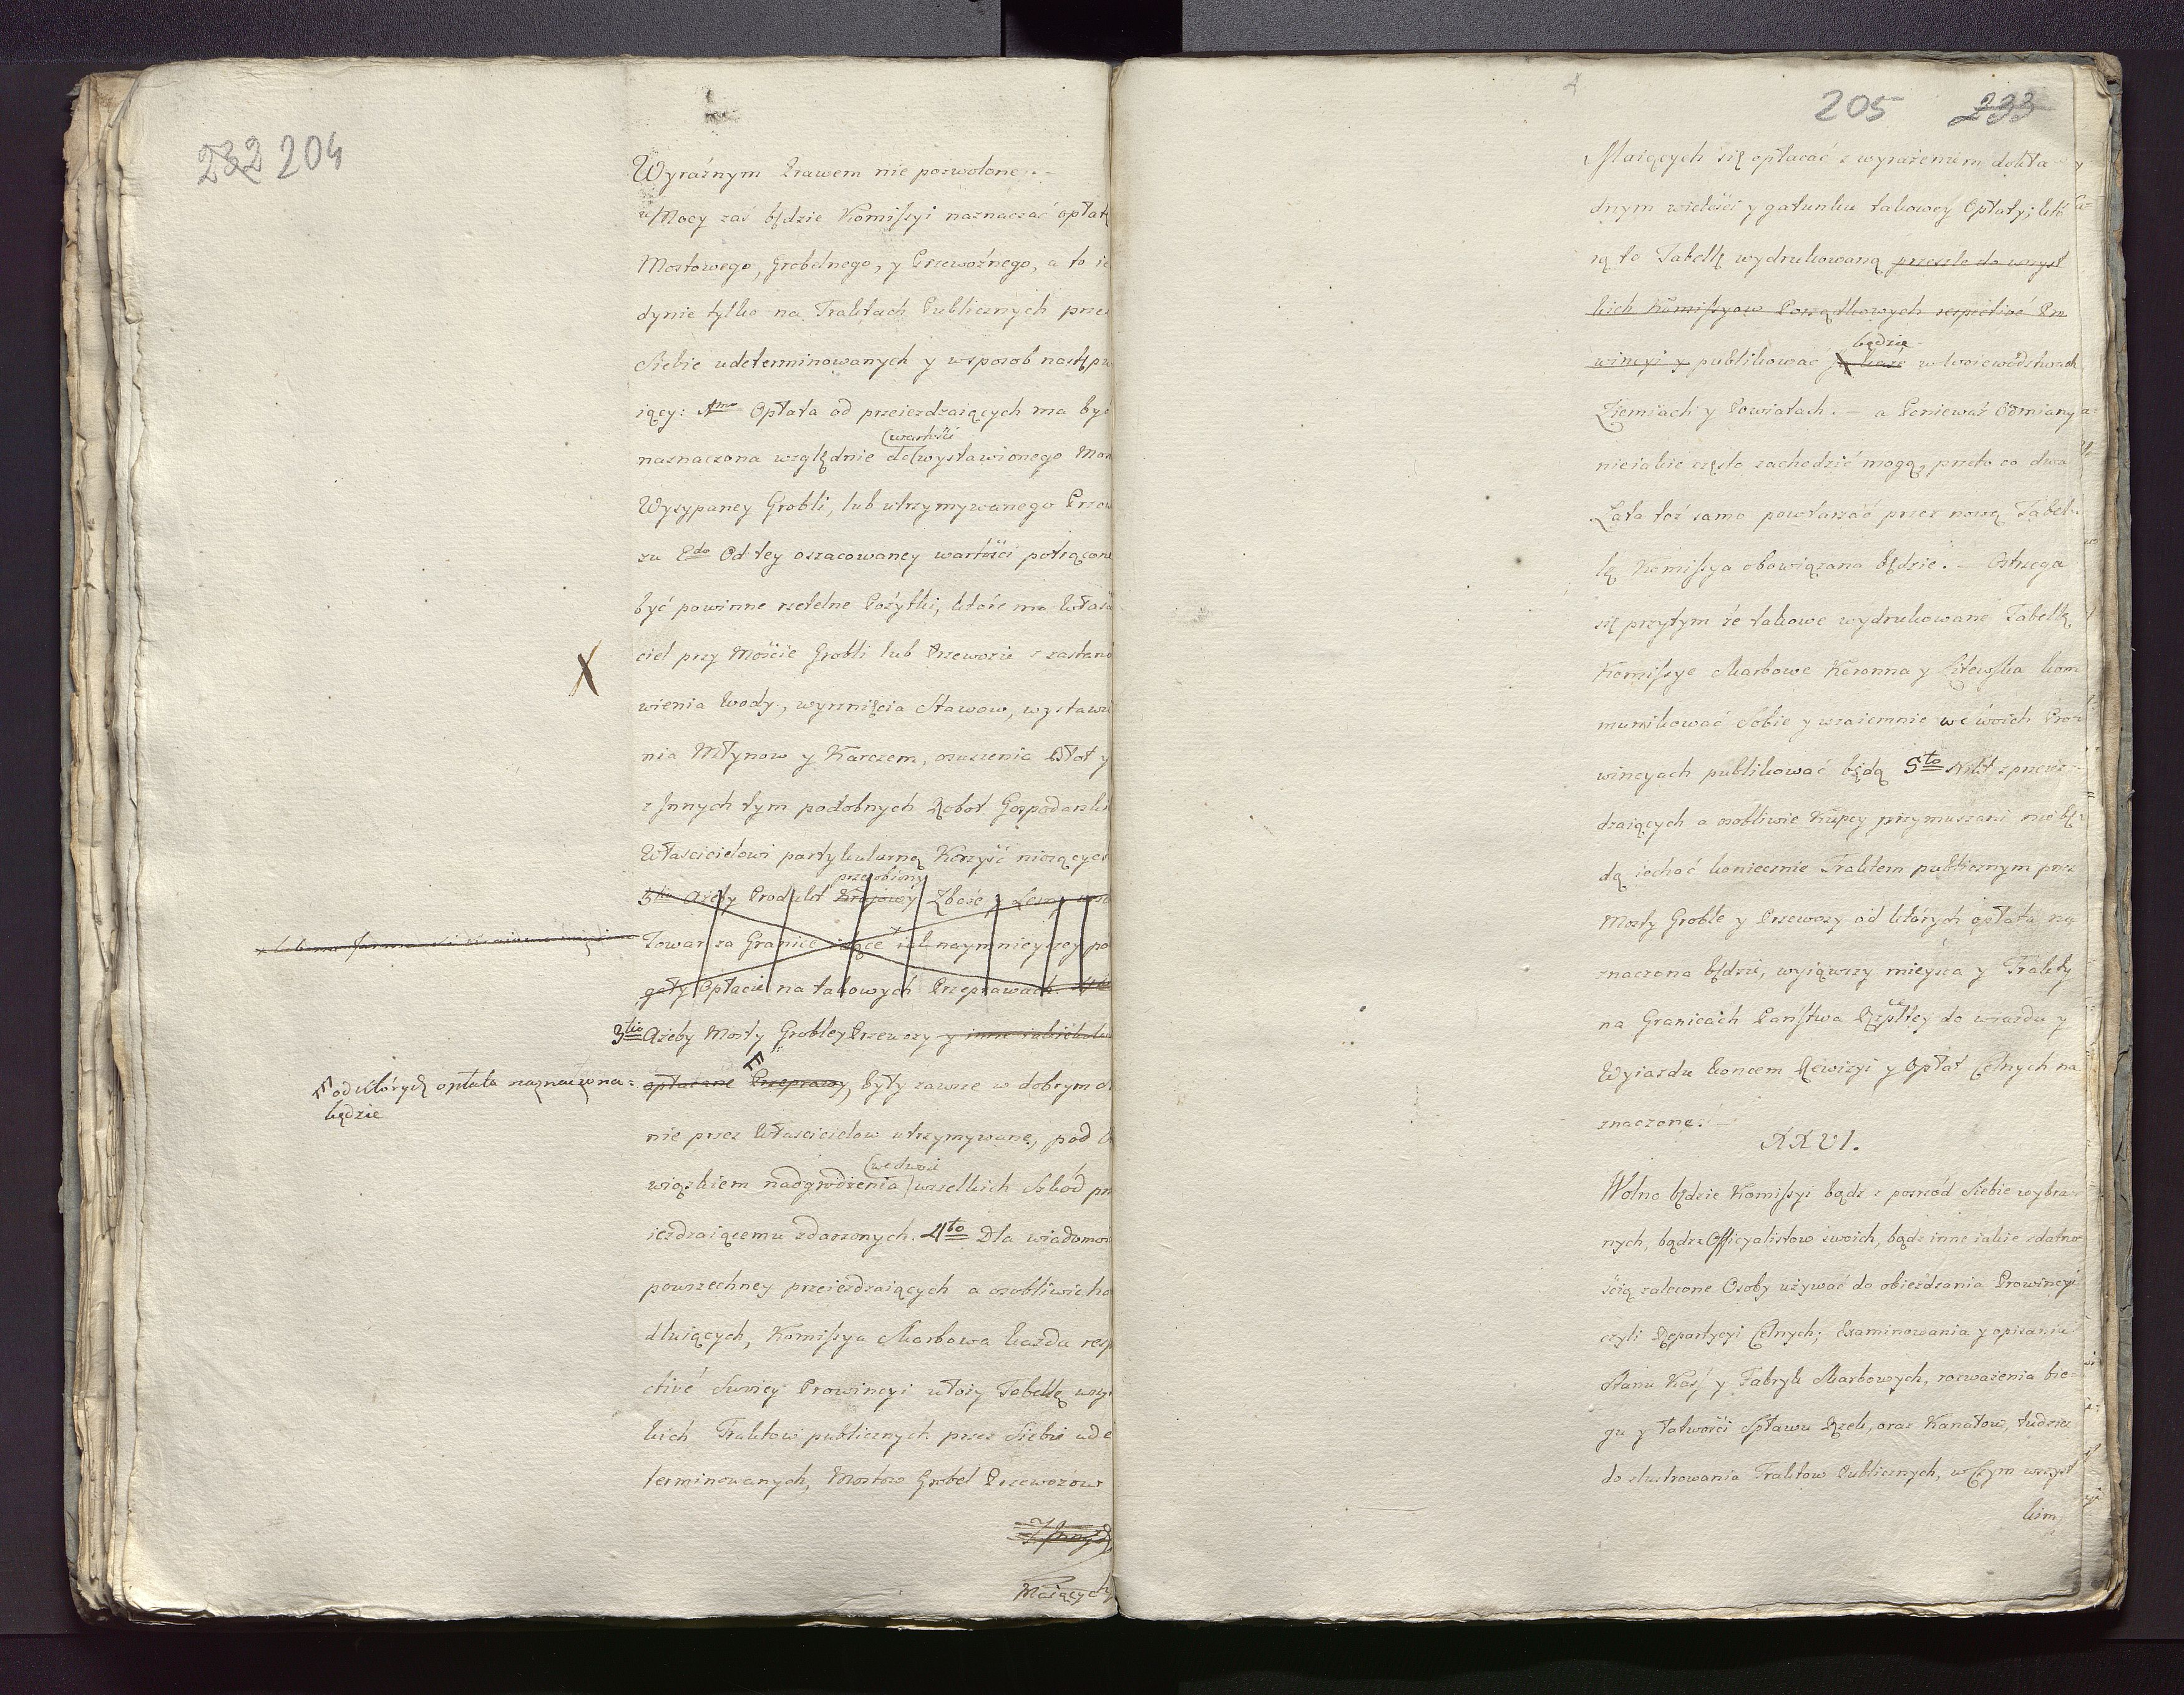 232 204
Wyraźnym Prawem nie pozwolone. –
w Mocy zaś będzie Komissyi naznaczać opłatę
Mostowego, Grobelnego, y Przewoźnego, a to ie
dynie tylko na Traktach Publicznych przez
Siebie udeterminowanych y w sposob następu
iący: 1mo Opłata od przeiezdzaiących ma być
(wartości
naznaczona względnie do (wystawionego Mos
Wysypaney Grobli, lub utrzymywanego Przew
zu 2do Od tey oszacowaney wartości potrącone
być powinne rzetelne Pożytki, które ma Właś
ciel przy Moście Grobli lub Przewozie z zastano
X
wienia Wody, wyrznięcia Stawow, wystawie
nia Młynow y Karczem, osuszenia Błot y
z Innych tym podobnych Robot Gospodarski
Właścicielowi partykularną Korzyść niosących
przerobiony
3tio Ażeby Produkt Kraiowy Zboże y Leśny
Towar za Granicę idące iak naymnieyszey po
gały Opłacie na takowych Przeprawach.
3tio Ażeby Mosty Groble y Przewozy y inne iakiekolwi
F
opłacane Przeprawy, były zawsze w dobrym
F od których opłata naznaczona =
będzie
nie przez Właścicielow utrzymywane, pod O
(we dwoie
wiązkiem nadgrodzenia (wszelkich Szkód prz
iezdzaiącemu zdarzonych. 4to Dla wiadomoś
powszechney przeieżdzaiących a osobliwie ha
dluiących, Komissya Skarbowa każda resp
ctivé Swoiey Prowincyi ułoży Tabellę wszy
kich Traktow publicznych przez Siebie ude
terminowanych, Mostow Grobel Przewozow
Maiących
205 233
Maiących się opłacać z wyrażeniem dokła
dnym wielości y gatunku takowey Opłaty; któ
rą to Tabellę wydrukowaną przeszle do wszyst
kich Komissyow Porządkowych respectivé Pro
będzie
wincyi y publikować w Woiewództwach
Ziemiach y Powiatach. – a Ponieważ Odmiany
nieiakie często zachodzić mogą, przeto co dwa
Lata toż samo powtarzać przez nową Tabel
lę Komissya obowiązana będzie. – Ostrzega
się przytym że takowe wydrukowane Tabellę
Komissye Skarbowe Koronna y Litewska kom
munikować Sobie y wzaiemnie w Swoich Pro
wincyach publikować będą 5to Nikt z przeież
dzaiących a osobliwie Kupcy przymuszani nie bę
dą iechać koniecznie Traktem publicznym przez
Mosty Groble y Przewozy od których opłata na
znaczona będzie, wyiąwszy mieysca y Trakty
na Granicach Państwa Rzpltey do wiazdu y
Wyiazdu koncem Rewizyi y Opłat Celnych na
znaczone. –
XXVI.
Wolno będzie Komissyi bądz z pośrzód Siebie wybra
nych, bądz Officyalistow swoich, bądz inne iakie zdatno
ścią zalecone Osoby używać do obiezdzania Prowincyi
czyli Repartycyi Celnych; Examinowania y opisania
Stanu Kass y Fabryk Skarbowych, rozważenia bie=
gu y łatwości Spławu Rzek, oraz Kanałow, tudzież
do zlustrowania Traktow Publicznych, w Czym wszyst
kim